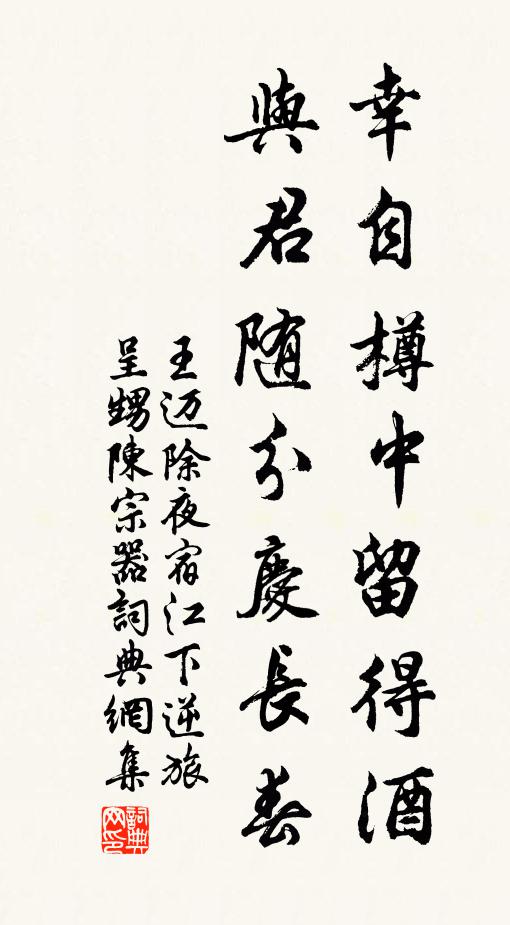 幸自樽中留得酒
與君随分慶長春
王迈除夜宿江下逆旅
呈甥陳宗器詞典網集
詞典网印